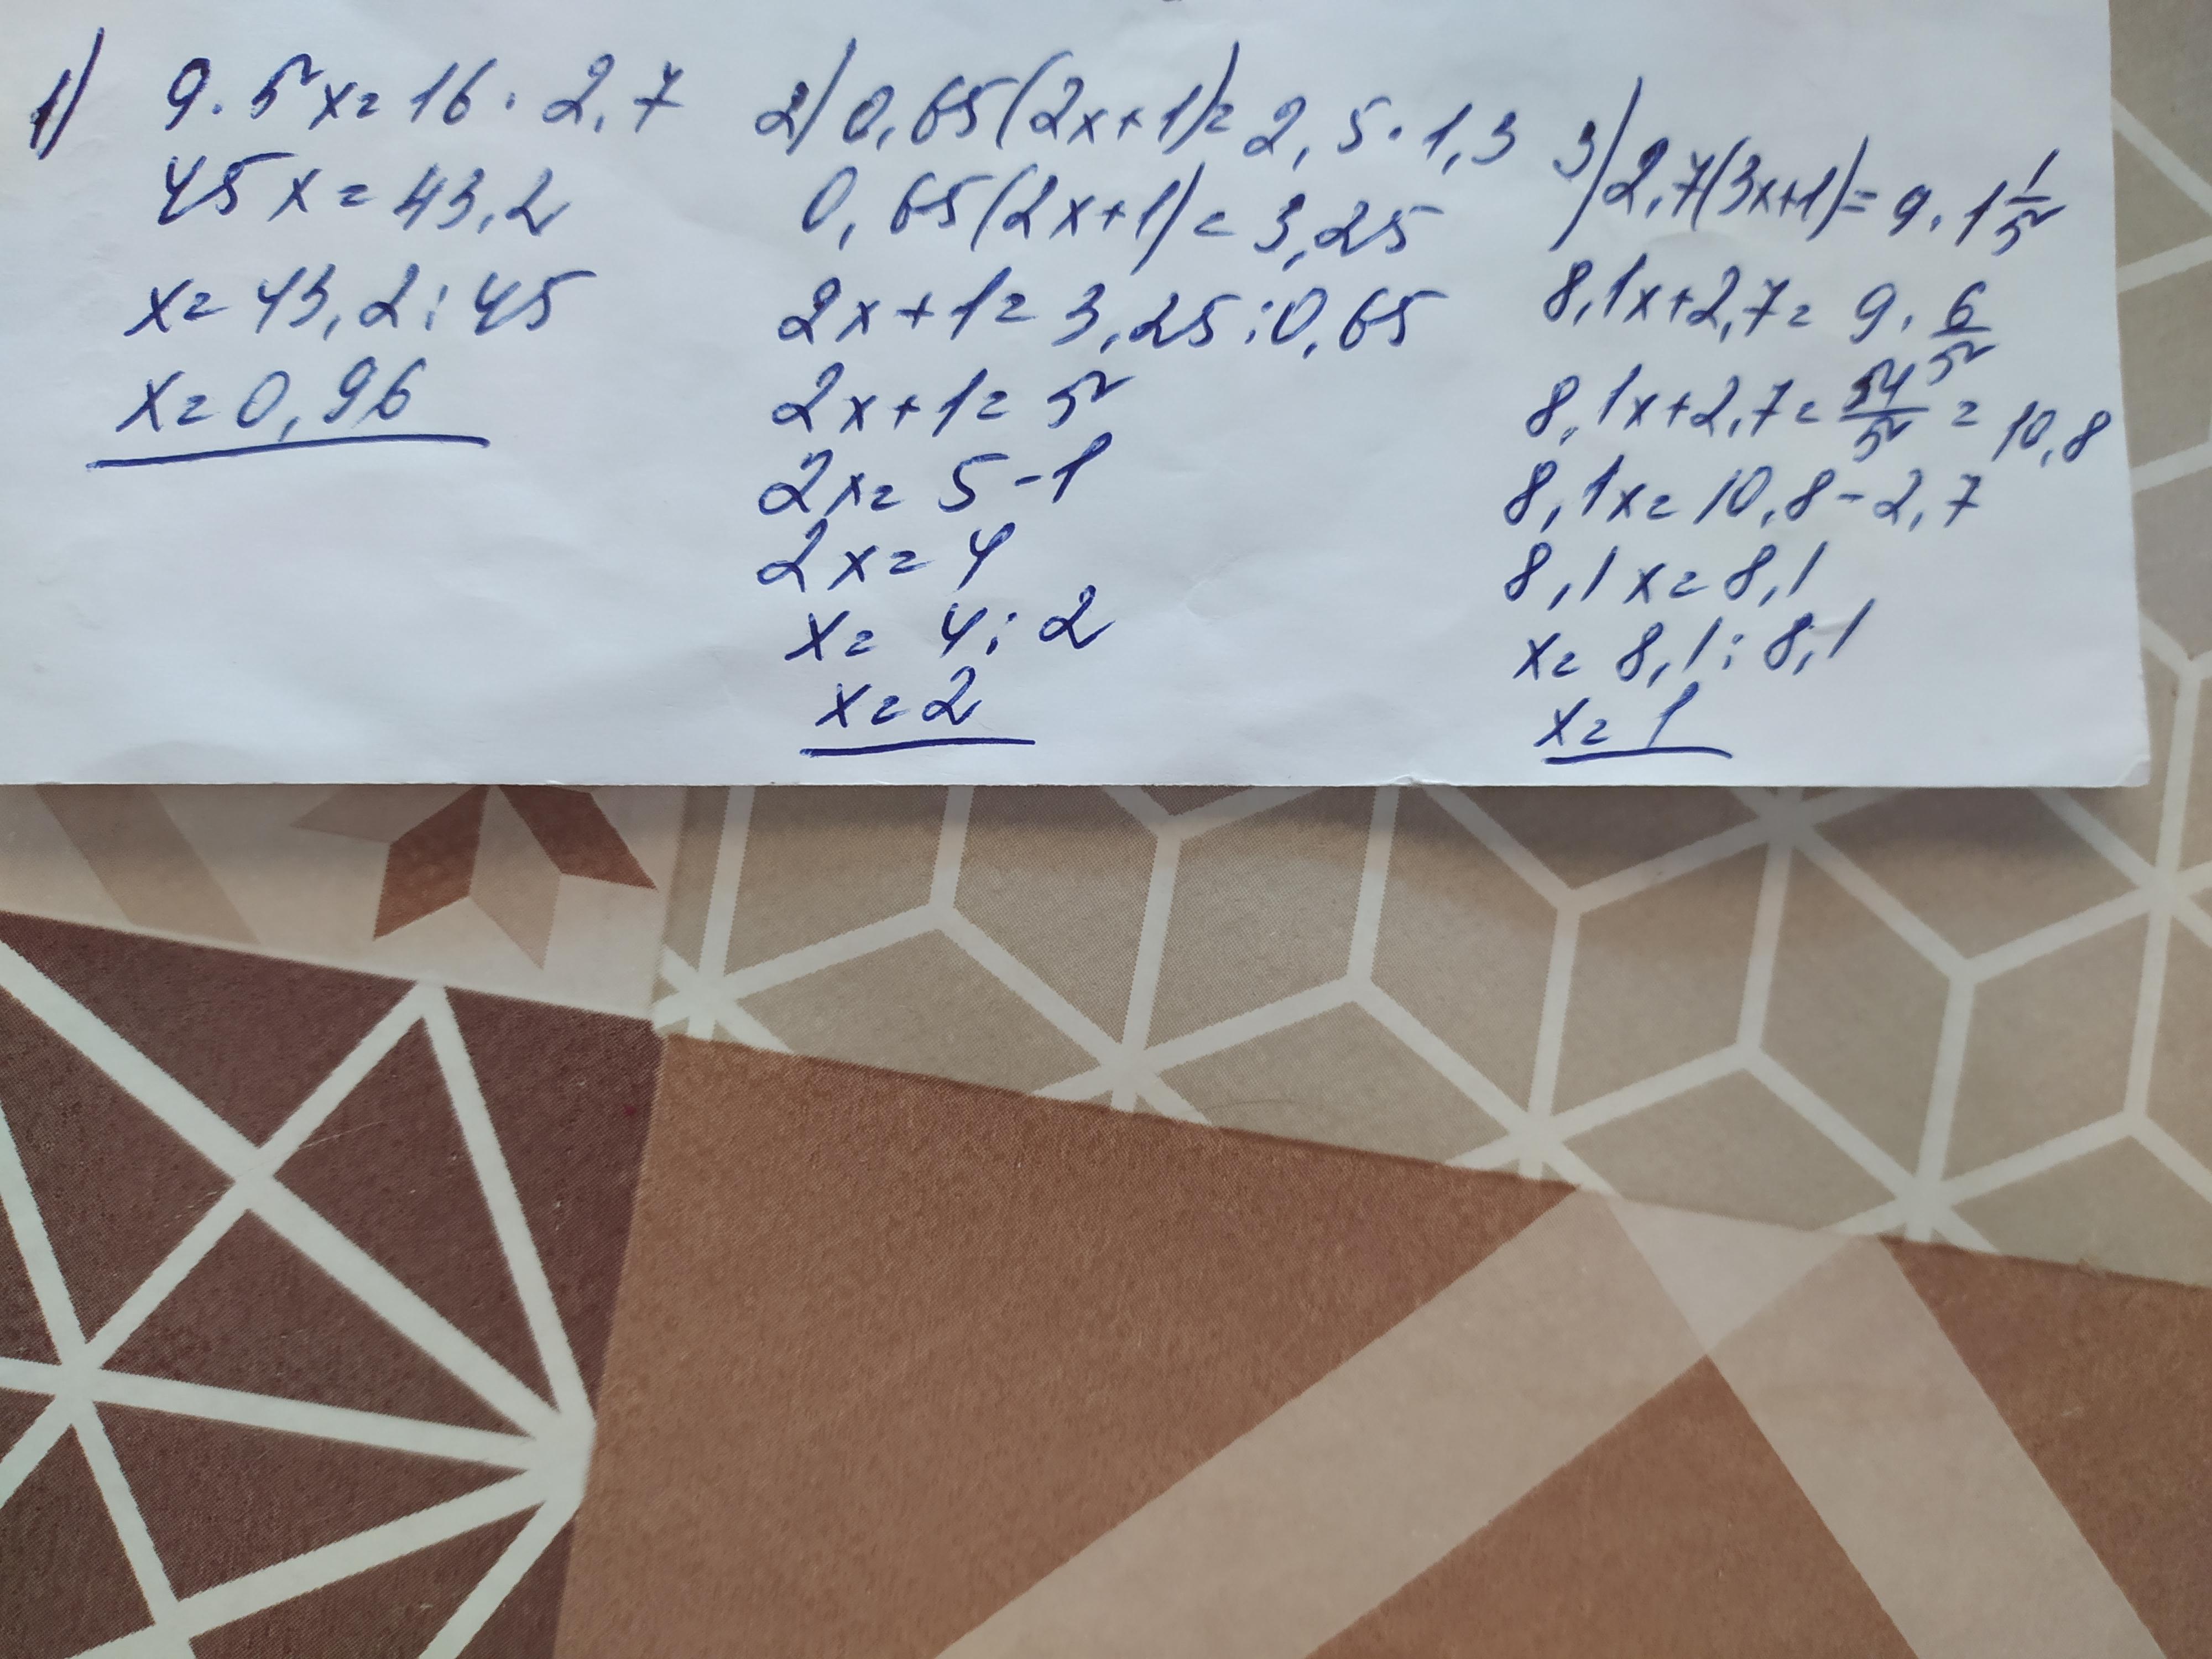 1) 9·5x=16·2,7
45x=43,2
x=43,2:45
x=0,96
2) 0,65(2x+1)=2,5·1,3
0,65(2x+1)=3,25
2x+1=3,25:0,65
2x+1=5
2x=5-1
2x=4
x=4:2
x=2
3) 2,7(3x+1)=9·1 1/5
8,1x+2,7=9·6/5
8,1x+2,7=54/5=10,8
8,1x=10,8-2,7
8,1x=8,1
x=8,1:8,1
x=1